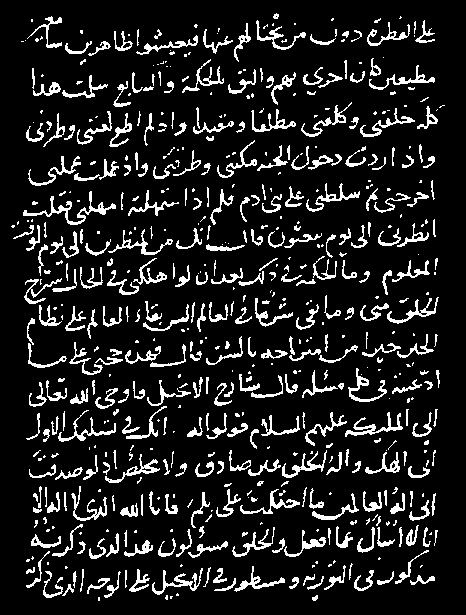 على الفطرة دون من يحتالهم عنها فيعيشوا ظاهرين سامعين
مطيعين كان احرى بهم واليق بالحكمة والسابع سلمت هذا
كله خلقني وكلفني مطلقا ومقيدا واذ لم اطع لعنني وطردني
واذ اردت دخول الجنه مكنني وطرقني واذ عملت عملي
اخرجني ثم سلطني على بني ادم فلم اذا استمهلته امهلني فقلت
انظرني الى يوم يبعثون قال انك من المنظرين الى يوم الوقت
المعلوم وما الحكمة في ذلك بعد ان لو اهلكني في الحال استراح
الخلق مني وما بقي شرّ ما في العالم اليس بقاء العالم على نظام
الخير خيرا من امتزاجه بالشر قال فهذه حجتي على ما
ادعيته في كل مسئلة قال شارح الانجيل فاوحى الله تعالى
الى الملايكه عليهم السلام قولوا له انك في تسليمك الاول
اني الهك واله الخلق غير صادق ولا مخلص اذ لو صدقت
اني اله العالمين ما احتكمت علي بلم فانا الله الذي لا اله الا
انا لا اسأل عما افعل والخلق مسؤلون هذا الذي ذكرته
مذكور في التورية ومسطور في الانجيل على الوجه الذي ذكرته